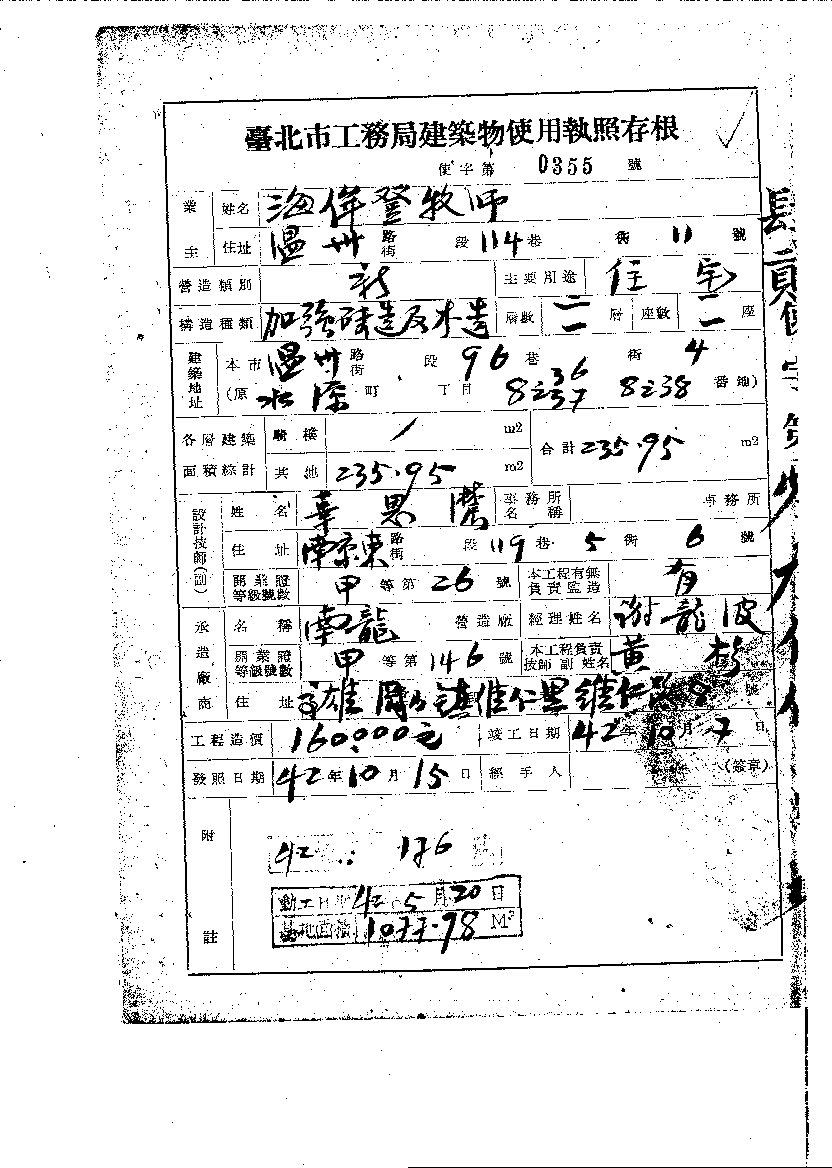 臺北市工務局建築物使用執照存根
使字第 0355 號
業主 姓名 海偉登牧師
住址 溫州 路街 段 114 巷 衖 11 號
營造類別 新 主要用途 住宅
構造種類 加強磚造及木造 層數 二一 層 座數 二一 座
建築地址 本市 溫州 路街 段 96 巷 衖 4
(原 水源 町 丁目 8之36 37 8之38 番地)
各層建築面積總計 騎樓 / m2 合計 235.95 m2
其他 235.95 m2
設計技師(副) 姓名 事務所名稱 事務所
住址 南京東 路街 段 119 巷 5 衖 6 號
開業證等級號數 甲 等第 26 號 本工程有無負責監造 有
承造廠商 名稱 南龍 營造廠 經理姓名 謝龍波
開業證等級號數 甲 等第 146 號 本工程負責技師副姓名 黃
住址 雄 岡山鎮維仁里維仁路 8 號
工程造價 160,000元 竣工日期 42年10月7日
發照日期 42年10月15日 經手人 (簽章)
附註
42 176
動工日 42 5月20日
基地面積 1077.98 M²